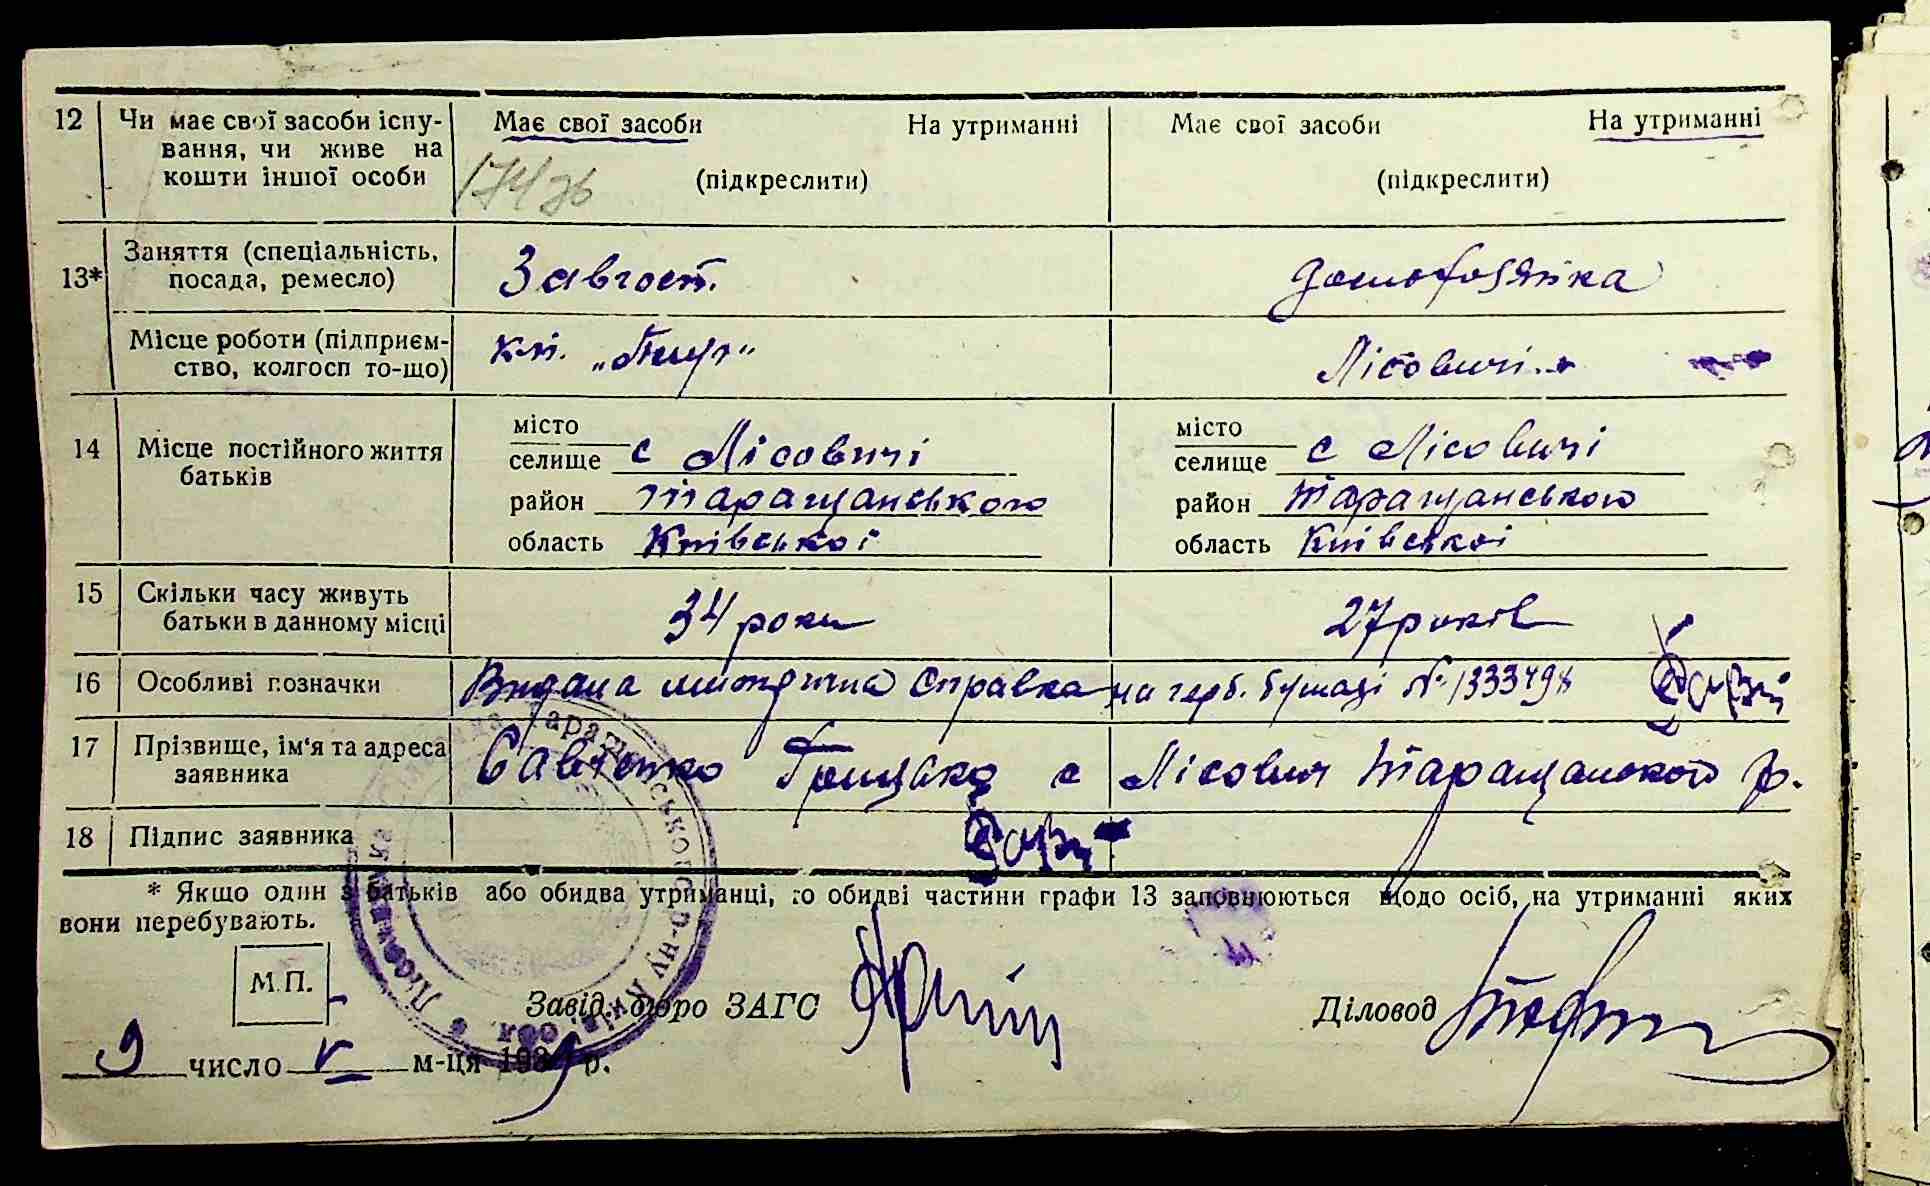 12 Чи має свої засоби існу- Має свої засоби На утриманні Має свої засоби На утриманні
вання, чи живе на
кошти іншої особи (підкреслити) (підкреслити)
Заняття (спеціальність, Завгосп. домохозяйка
13* посада, ремесло)
Місце роботи (підприєм- Лісовичі
ство, колгосп то-що)
місто місто
14 Місце постійного життя селище с Лісовичі селище с Лісовичі
батьків
район Таращанського район Таращанського
область Київської область Київської
15 Скільки часу живуть 34 роки 27 років
батьки в данному місці
16 Особливі позначки Видана справка на герб. бумазі № 1333498
17 Прізвище, ім'я та адреса Савченко с Лісович Таращанського р.
заявника
18 Підпис заявника
* Якщо один з батьків або обидва утриманці, то обидві частини графи 13 заповнюються щодо осіб, на утриманні яких
вони перебувають.
М.П.
Завід. бюро ЗАГС Діловод
9 число V м-ця 1939 р.